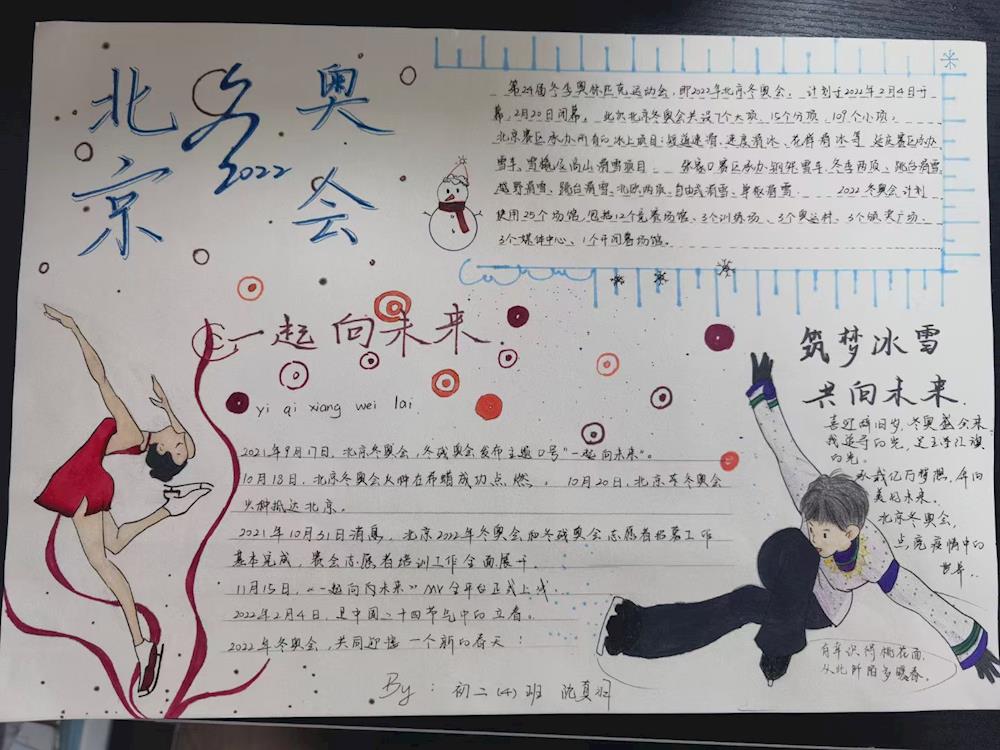 北京
冬
奥会
2022
第24届冬季奥林匹克运动会,即2022年北京冬奥会。计划于2022年2月4日开
幕,2月20日闭幕。北京冬奥会共设7个大项,15个分项,109个小项。
北京赛区承办所有的冰上项目:短道速滑、速度滑冰、花样滑冰等 延庆赛区承办
雪车、雪橇及高山滑雪项目。 张家口赛区承办 雪车、冬季两项、跳台滑雪
越野滑雪、跳台滑雪、北欧两项、自由式滑雪、单板滑雪。 2022冬奥会计划
使用25个场馆,包括12个竞赛场馆、3个训练场、3个奥运村、3个颁奖广场、
3个媒体中心、1个开闭幕场馆。
一起向未来
yi qi xiang wei lai
2021年9月17日,北京冬奥会,冬残奥会发布主题口号"一起向未来"。
10月18日,北京冬奥会火种在希腊成功点燃。 10月20日,北京冬奥会
火种抵达北京。
2021年10月31日消息,北京2022年冬奥会和冬残奥会志愿者招募工作
基本完成,赛会志愿者培训工作全面展开。
11月15日,《一起向未来》MV全平台正式上线
2022年2月4日,是中国二十四节气中的立春。
2022年冬奥会,共同迎接一个新的春天!
By: 初二(4)班
筑梦冰雪
共向未来
喜迎辞旧岁,冬奥盛会来
我追寻的光,是五环
的光。
承载亿万梦想,奔向
美好未来。
北京冬奥会,
点亮疫情中的
世界..
何年识得桃花面,
从北